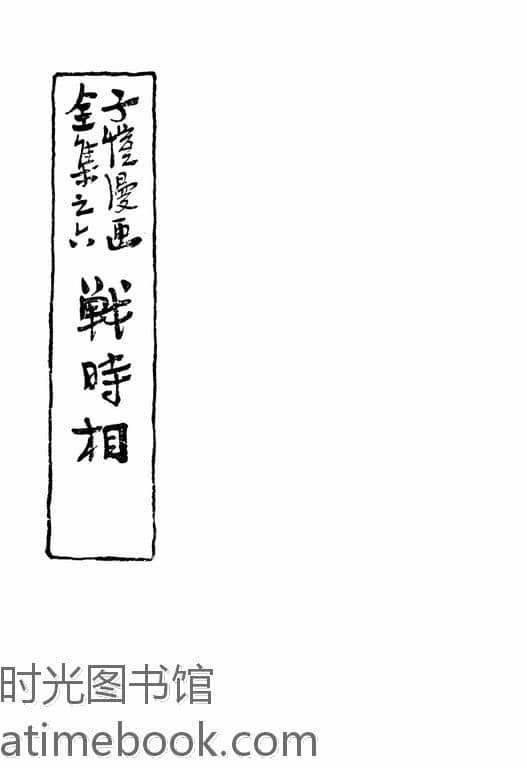 子愷漫画
全集之六
戦時相
时光图书馆
atimebook.com